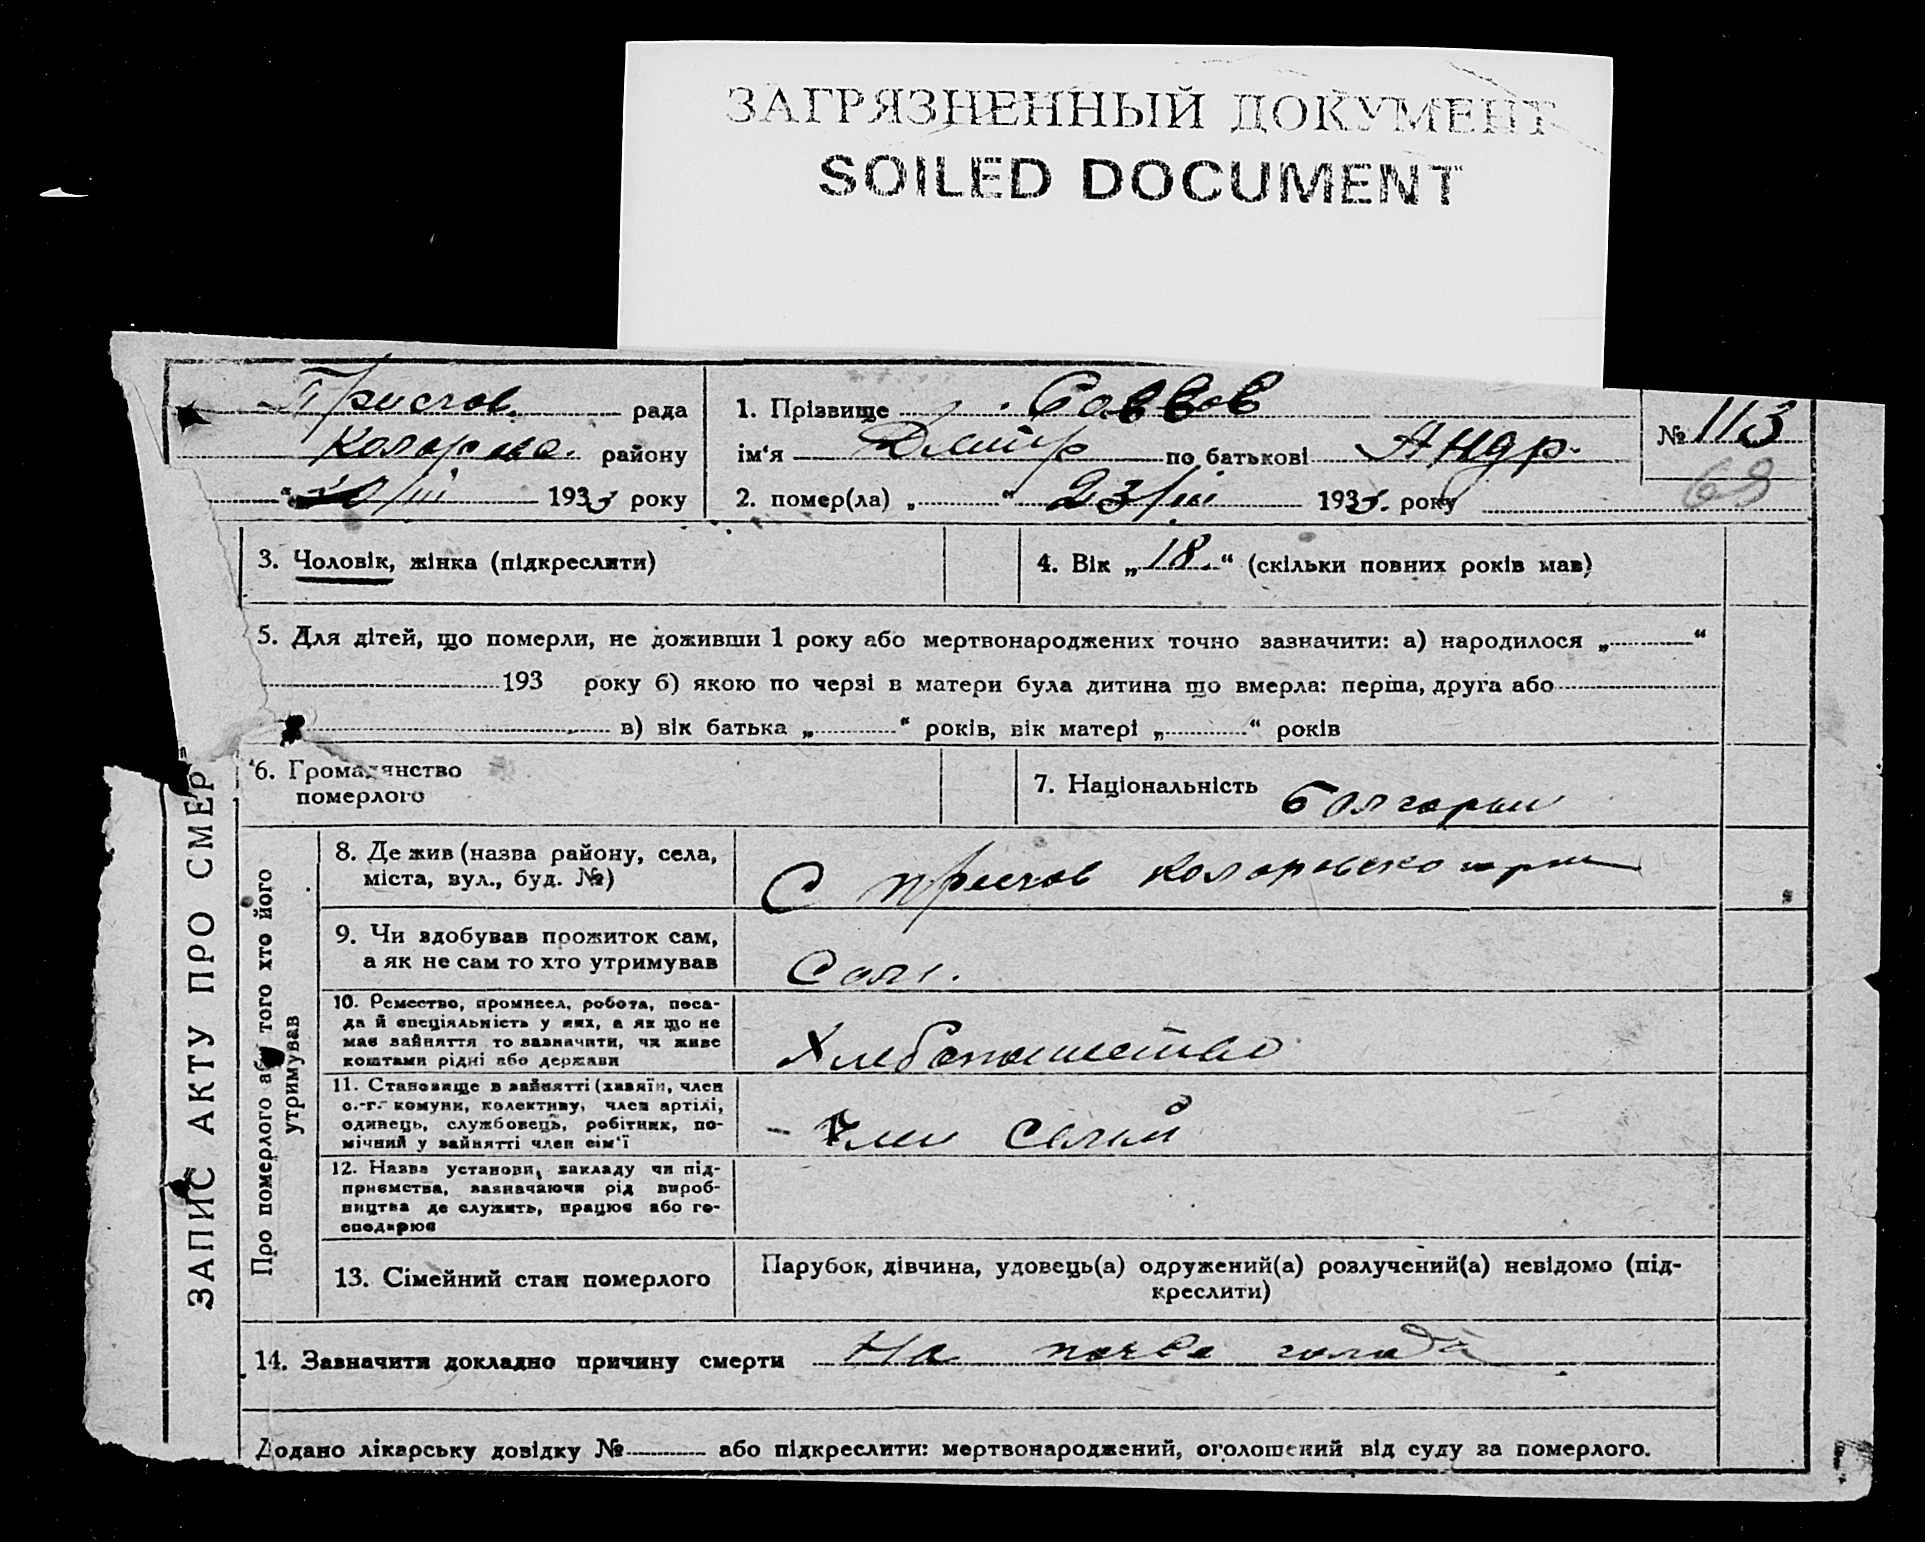 ЗАГРЯЗНЕННЫЙ ДОКУМЕНТ
SOILED DOCUMENT
рада
району
1933 року
1. Прізвище Саввов
ім‘я Дмитр по батькові Андр.
2. помер(ла) „ “ 23/III 1933. року
№ 113
69
3. Чоловік, жінка (підкреслити)
4. Вік „18.“ (скільки повних років мав)
5. Для дітей, що померли, не доживши 1 року або мертвонароджених точно зазначити: а) народилося „ “
193 року б) якою по черзі в матери була дитина що вмерла: перша, друга або
в) вік батька „ “ років, вік матері „ “ років
6. Громадянство
померлого
7. Національність Болгарин
ЗАПИС АКТУ ПРО СМЕР
Про померлого або того хто його
утримував
8. Де жив (назва району, села,
міста, вул., буд. №)
С
9. Чи здобував прожиток сам,
а як не сам то хто утримував
Сам.
10. Ремество, промисел, робота, поса-
да й спеціяльність у них, а як що не
має зайняття то зазначити, чи живе
коштами рідні або держави
Хлебопашество
11. Становище в зайнятті (хазяїн, член
с.-г. комуни, колективу, член артілі,
одинець, службовець, робітник, по-
мічний у зайнятті член сім‘ї
- член семьи
12. Назва установи, закладу чи під-
приємства, зазначаючи рід вироб-
ництва де служить, працює або го-
сподарює
13. Сімейний стан померлого
Парубок, дівчина, удовець(а) одружений(а) розлучений(а) невідомо (під-
креслити)
14. Зазначити докладно причину смерти На почве голода
Додано лікарську довідку № або підкреслити: мертвонароджений, оголошений від суду за померлого.